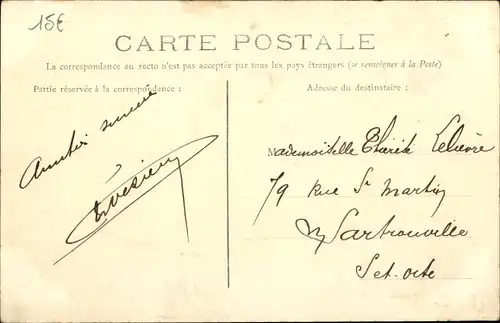 15€
CARTE POSTALE
La correspondance au recto n'est pas acceptée par tous les pays étrangers (se renseigner à la Poste)
Partie réservée à la correspondance :
Adresse du destinataire :
Amitié
Mademoiselle Lelièvre
79 Rue St Martin
Sartrouville
Set-oite